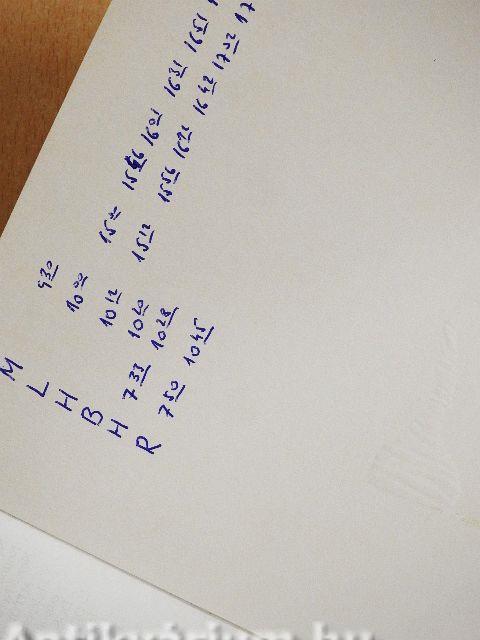 M 9 30
L 10 00 15 00 15 46 16 01 16 31 16 51
H 10 12 15 12 15 56 16 22 16 42 17 02 17
B 10 20
H 7 33 10 28
R 7 50 10 45
Antikvárium.hu